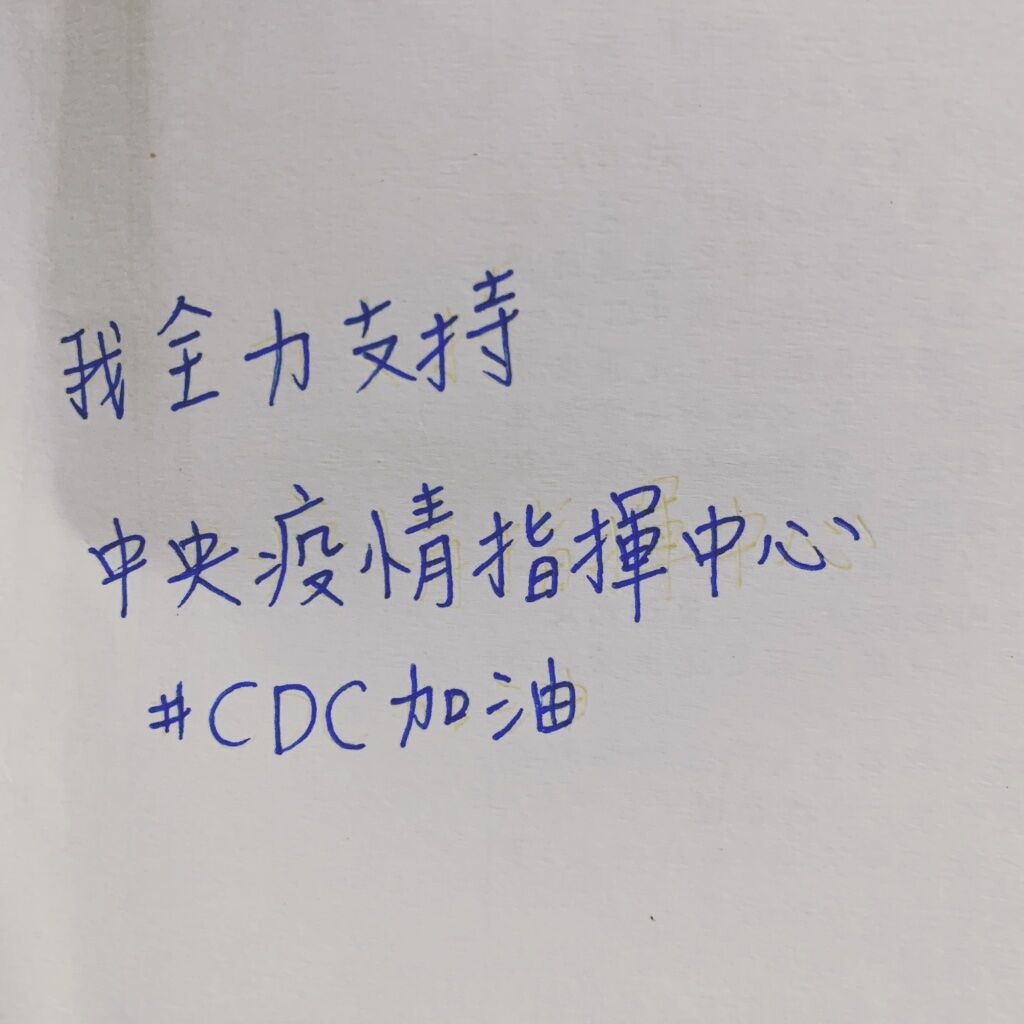 我全力支持
中央疫情指揮中心
#CDC加油